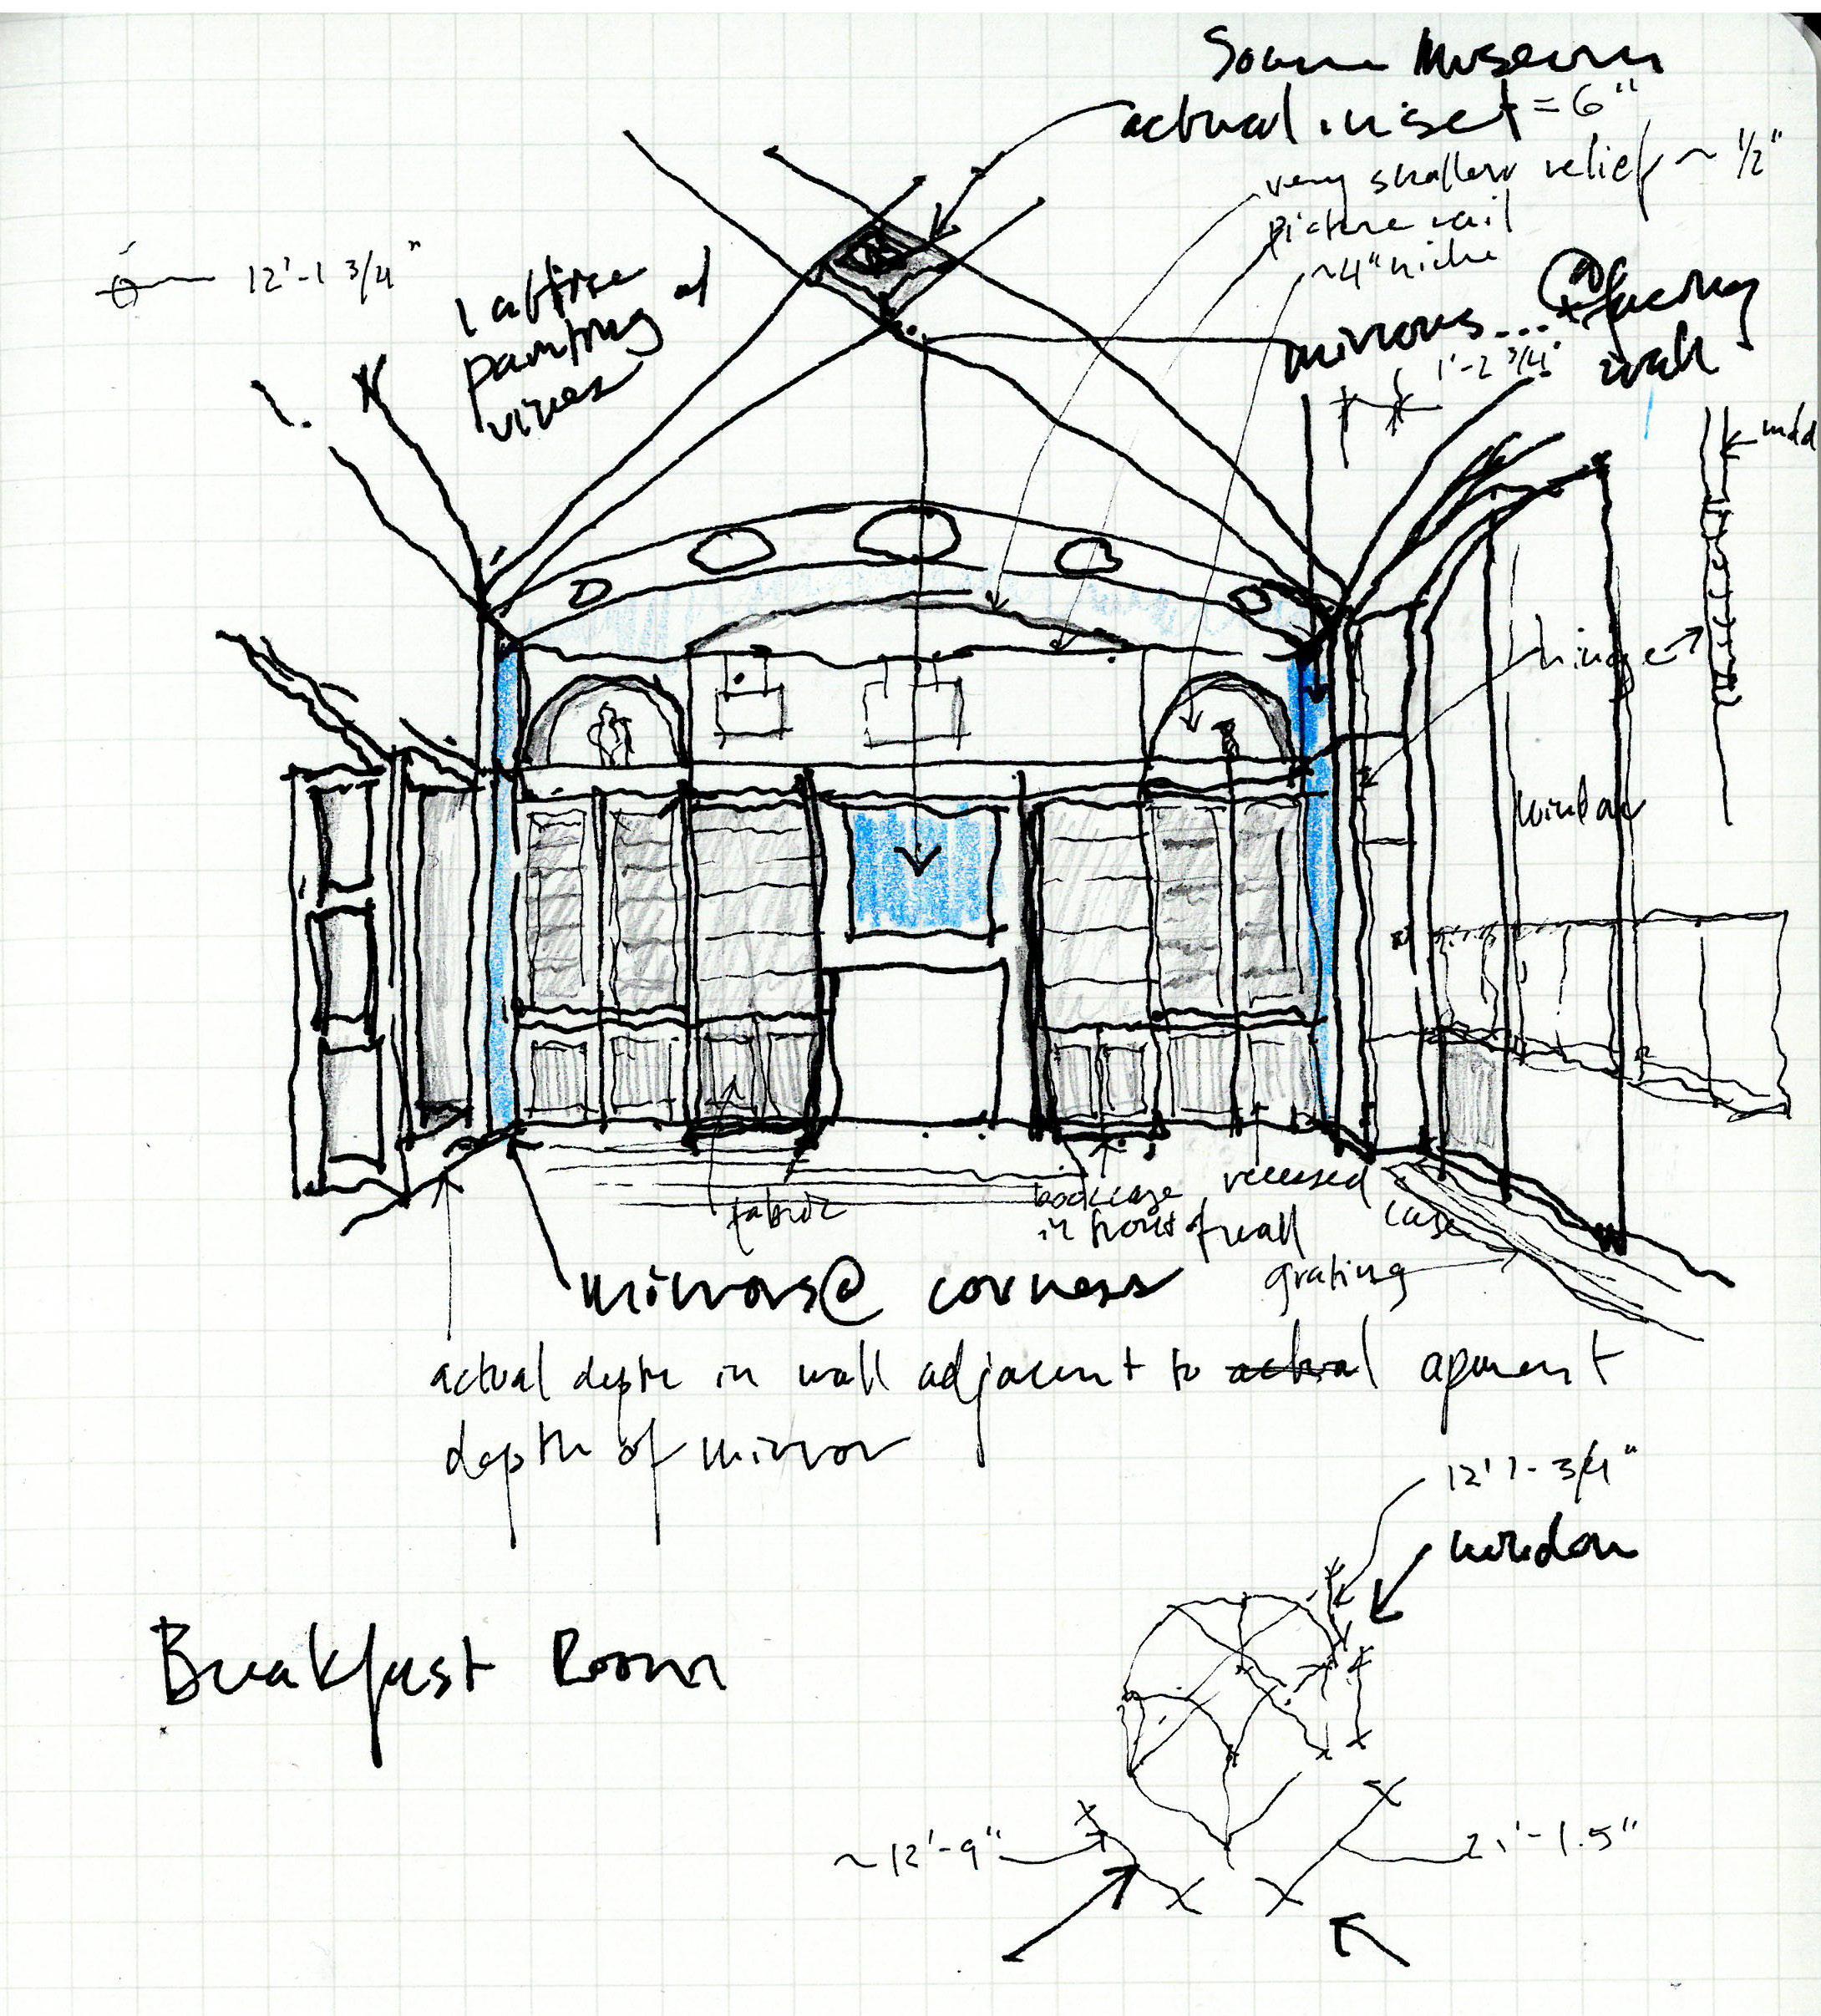 Soane Museum
actual inset = 6"
very shallow relief ~ 1/2"
picture rail
~4" niche
mirrors... @ facing
wall
1'-2 3/4"
12'-1 3/4"
lattice
painting of
vines
hinge
window
fabric
bookcase
in front of wall
recessed
case
grating
mirrors @ corners
actual depth in wall adjacent to actual aparent
depth of mirror
12' 1-3/4"
window
Breakfast Room
~12'-9"
21'-1.5"